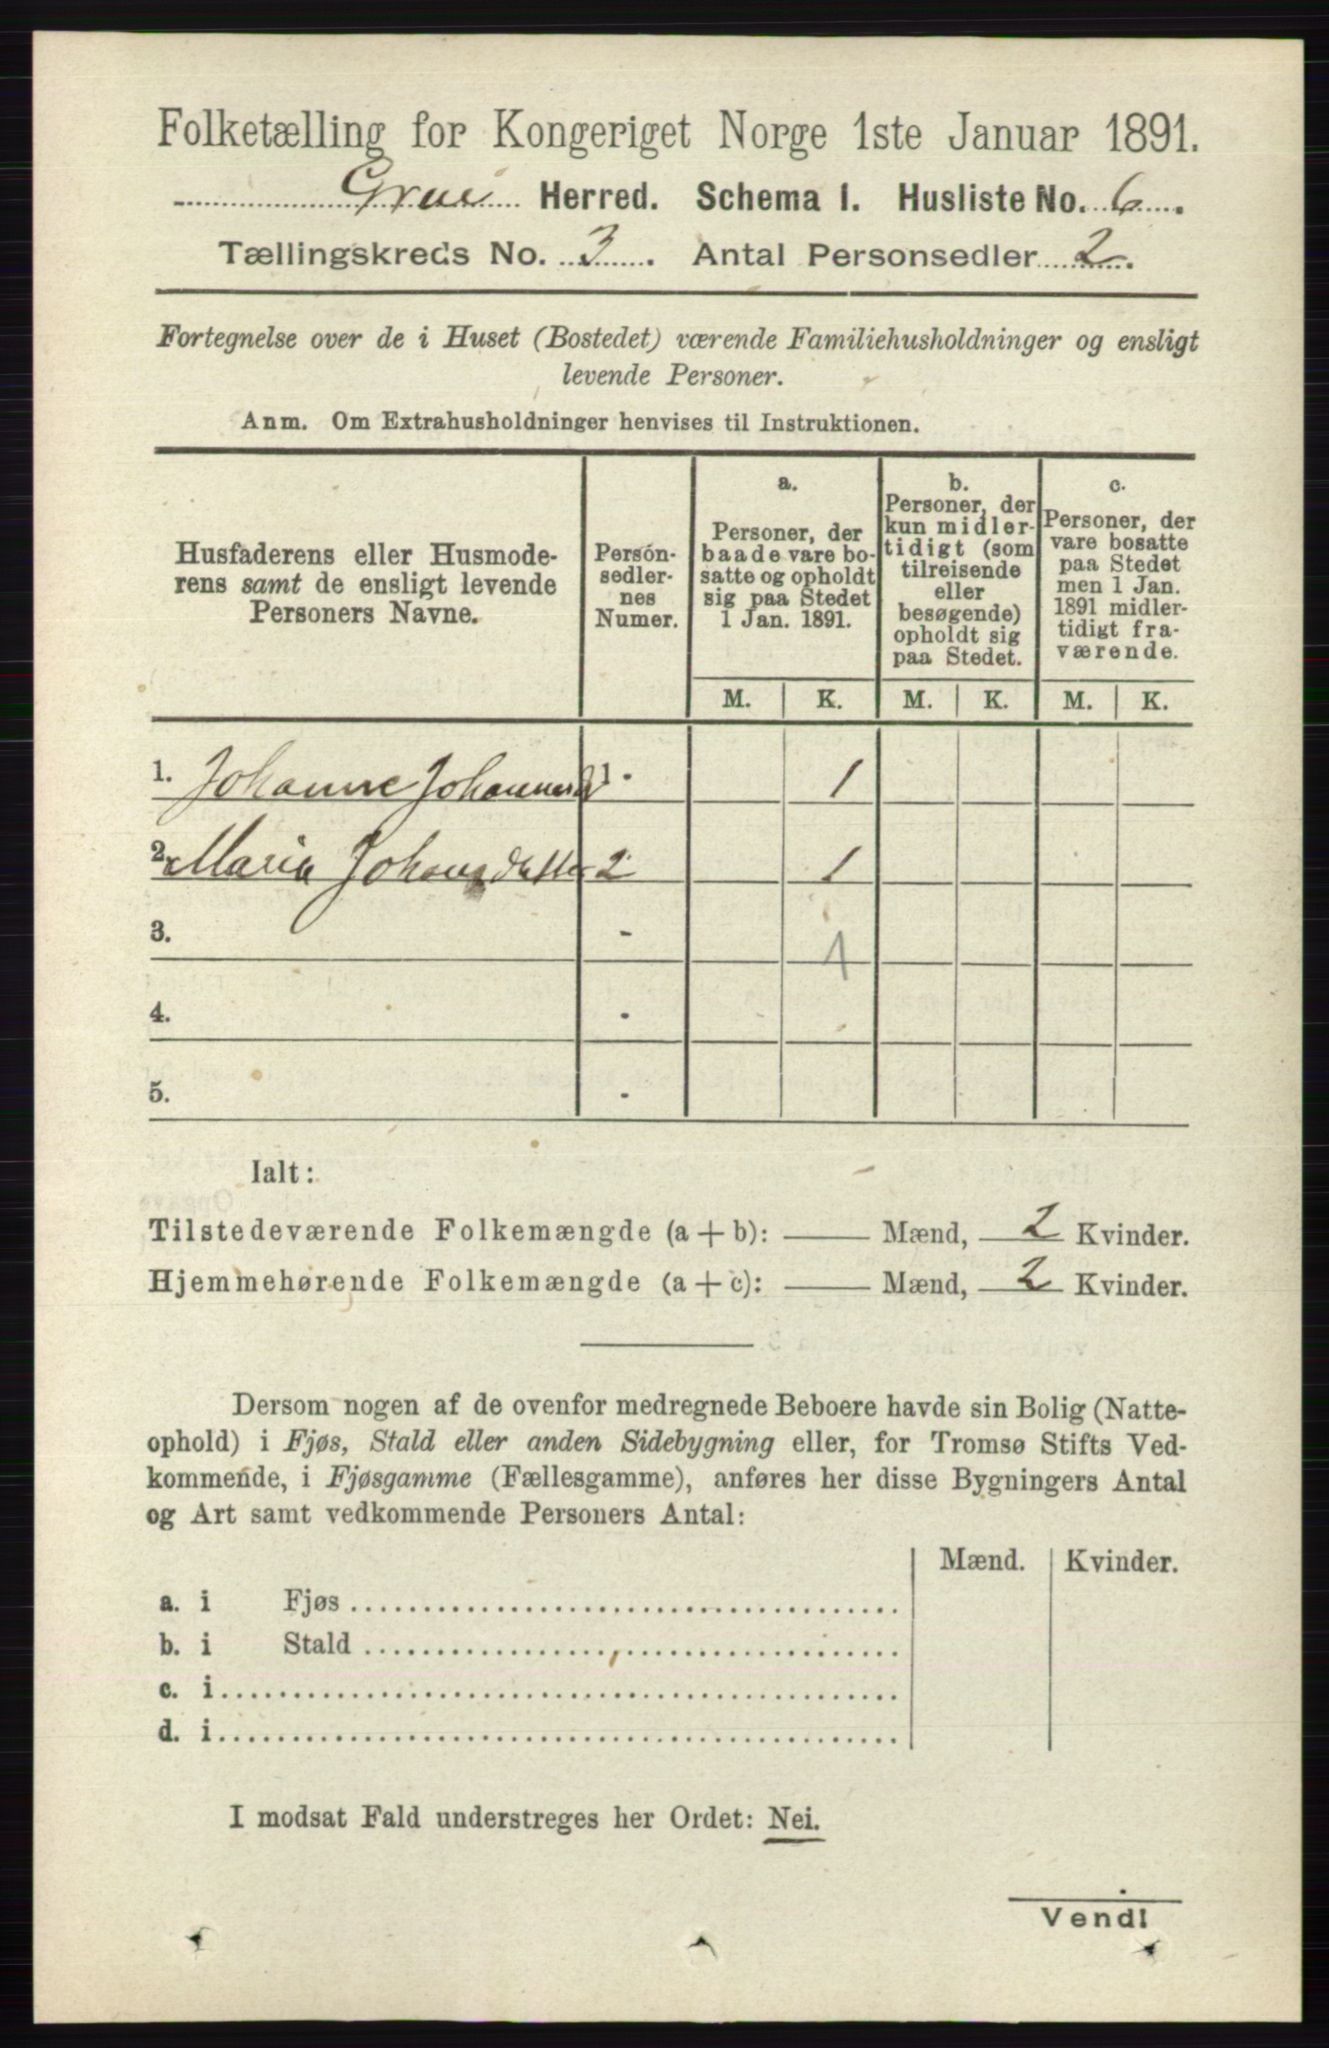 Folketælling for Kongeriget Norge 1ste Januar 1891.
Grue Herred. Schema 1. Husliste No. 6.
Tællingskreds No. 3. Antal Personsedler 2.
Fortegnelse over de i Huset (Bostedet) værende Familiehusholdninger og ensligt
levende Personer.
Anm. Om Extrahusholdninger henvises til Instruktionen.
Husfaderens eller Husmode-
rens samt de ensligt levende
Personers Navne.
Person-
sedler-
nes
Numer.
a.
Personer, der
baade vare bo-
satte og opholdt
sig paa Stedet
1 Jan. 1891.
b.
Personer, der
kun midler-
tidigt (som
tilreisende
eller
besøgende)
opholdt sig
paa Stedet.
c.
Personer, der
vare bosatte
paa Stedet
men 1 Jan.
1891 midler-
tidigt fra-
værende.
M. K. M. K. M. K.
1. Johanne 1 - 1
2. Maria Johansdatter 2 1
3. - 1
4. -
5. -
Ialt:
Tilstedeværende Folkemængde (a + b): — Mænd, 2 Kvinder.
Hjemmehørende Folkemængde (a + c): — Mænd, 2 Kvinder.
Dersom nogen af de ovenfor medregnede Beboere havde sin Bolig (Natte-
ophold) i Fjøs, Stald eller anden Sidebygning eller, for Tromsø Stifts Ved-
kommende, i Fjøsgamme (Fællesgamme), anføres her disse Bygningers Antal
og Art samt vedkommende Personers Antal:
Mænd. Kvinder.
a. i Fjøs
b. i Stald
c. i
d. i
I modsat Fald understreges her Ordet: Nei.
Vend!